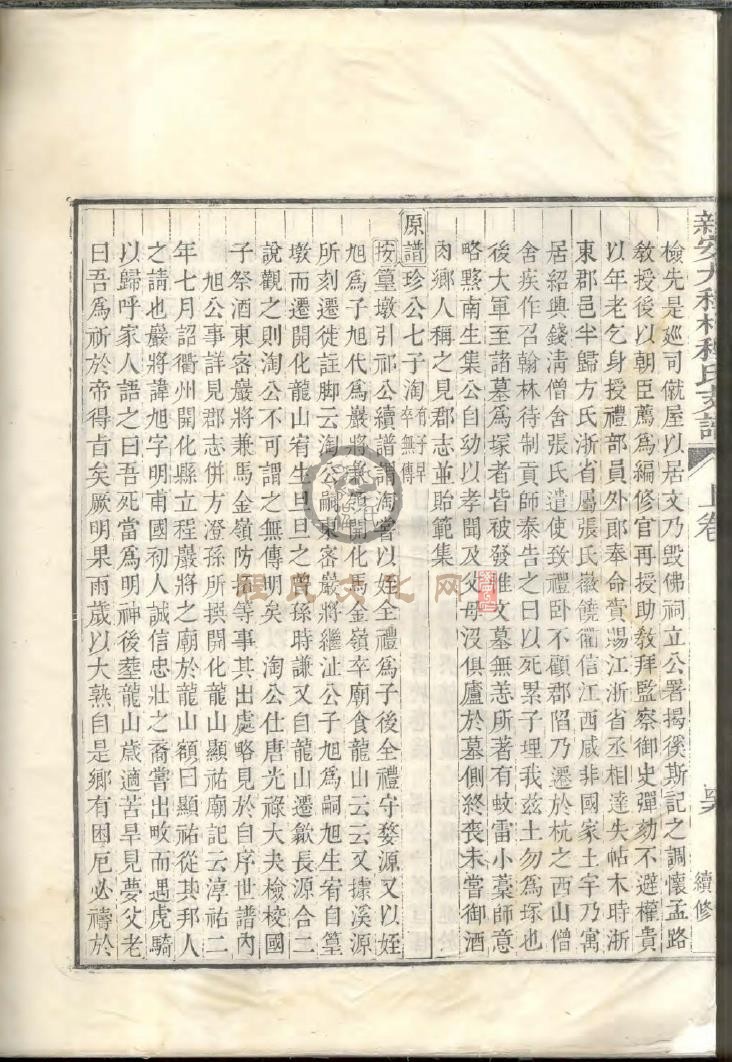 新安大程村程氏支譜
上卷
續修
檢先是廵司僦屋以居文乃毀佛祠立公署揭徯斯記之調懷孟路
敎授後以朝臣薦爲編修官再授助敎拜監察御史彈劾不避權貴
以年老乞身授禮部員外郎奉命賫賜江浙省丞相達失帖木時浙
東郡邑半歸方氏浙省屬張氏徽饒衢信江西咸非國家土宇乃寓
居紹興錢淸僧舍張氏遣使致禮卧不顧郡陷乃遷於杭之西山僧
舍疾作召翰林待制貢師泰告之曰以死累子理我兹土勿爲塚也
後大軍至諸墓爲塚者皆被發惟文墓無恙所著有蚊雷小藁師意
略黟南生集公自幼以孝聞及父母没俱廬於墓側終喪未嘗御酒
肉鄉人稱之見郡志並貽範集
原譜 珍公七子淘有子早卒無傳
按篁墩引祁公續譜謂淘嘗以姪全禮爲子後全禮守婺源又以姪
旭爲子旭代爲巖將 開化馬金嶺卒廟食龍山云云又據溪源
所刻遷徙註脚云淘公嗣東密巖將繼沚公子旭爲嗣旭生宥自篁
墩而遷開化龍山宥生旦旦之曾孫時謙又自龍山遷歙長源合二
說觀之則淘公不可謂之無傳明矣 淘公仕唐光祿大夫檢校國
子祭酒東密巖將兼馬金嶺防拓等事其出處略見於自序世譜內
旭公事詳見郡志併方澄孫所撰開化龍山顯祐廟記云淳祐二
年七月詔衢州開化縣立程巖將之廟於龍山額曰顯祐從其邦人
之請也巖將諱旭字明甫國初人誠信忠壯之裔嘗出畋而遇虎騎
以歸呼家人語之曰吾死當爲明神後塟龍山歲適苦旱見夢父老
曰吾爲祈於帝得旨矣厥明果雨歲以大熟自是鄉有困厄必禱於
程氏文化网